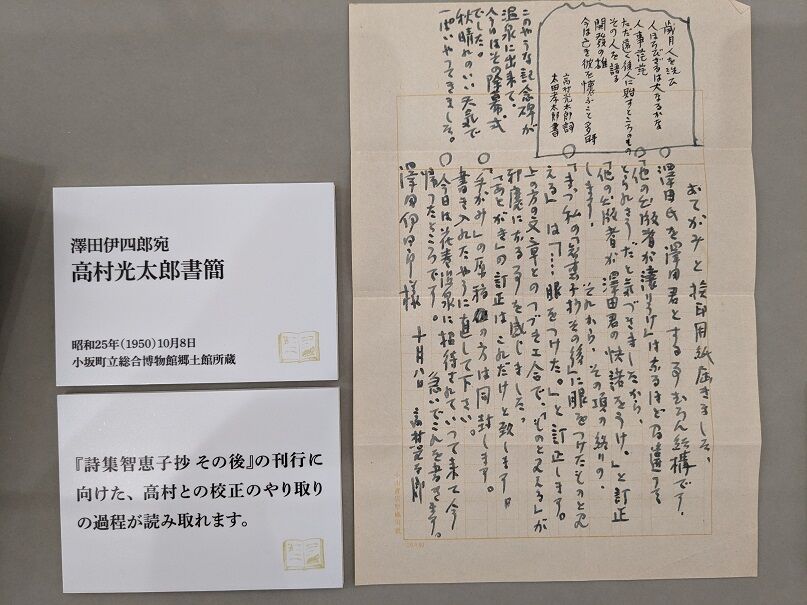 澤田伊四郎宛
高村光太郎書簡
昭和25年(1950)10月8日
小坂町立総合博物館郷土館所蔵
『詩集智恵子抄 その後』の刊行に
向けた、高村との校正のやり取り
の過程が読み取れます。
おてがみと検印用紙届きました、
○澤田氏を澤田君とする事むろん結構です。
○「他の出版者が譲りうけ」はなるほど
とられさうだと気づきましたから、
「他の出版者が澤田君の快諾をうけ、」と訂正
します。 それから、その項の終りの、
○「まづ私の「智恵子抄その後」に眼をつけたものと見
える」は「……眼をつけた。」と訂正します。
上の方の文章とのつづき工合で、「ものと見える」が
邪魔になる事を感じました。
「あとがき」の訂正はこれだけと致します。
○「手がみ」の原稿の方は同封します。
書き入れたやうに直して下さい。
○今日は花巻温泉に招待されていつて来て今
帰つたところです。 急いでこれを書きます。
澤田伊四郎様 十月八日 高村光太郎
歳月人を洗ひ
人ほろびざるは大なるかな
人事茫茫
ただ遠く後人に貽すところのもの
その人を語る
開發の雄
今は亡き彼を懐ふこと多時
高村光太郎詞
太田孝太郎書
このやうな記念碑が
温泉に出来て、
今日はその除幕式
でした。
秋晴れのいい天気で
一ぱいやつてきました。